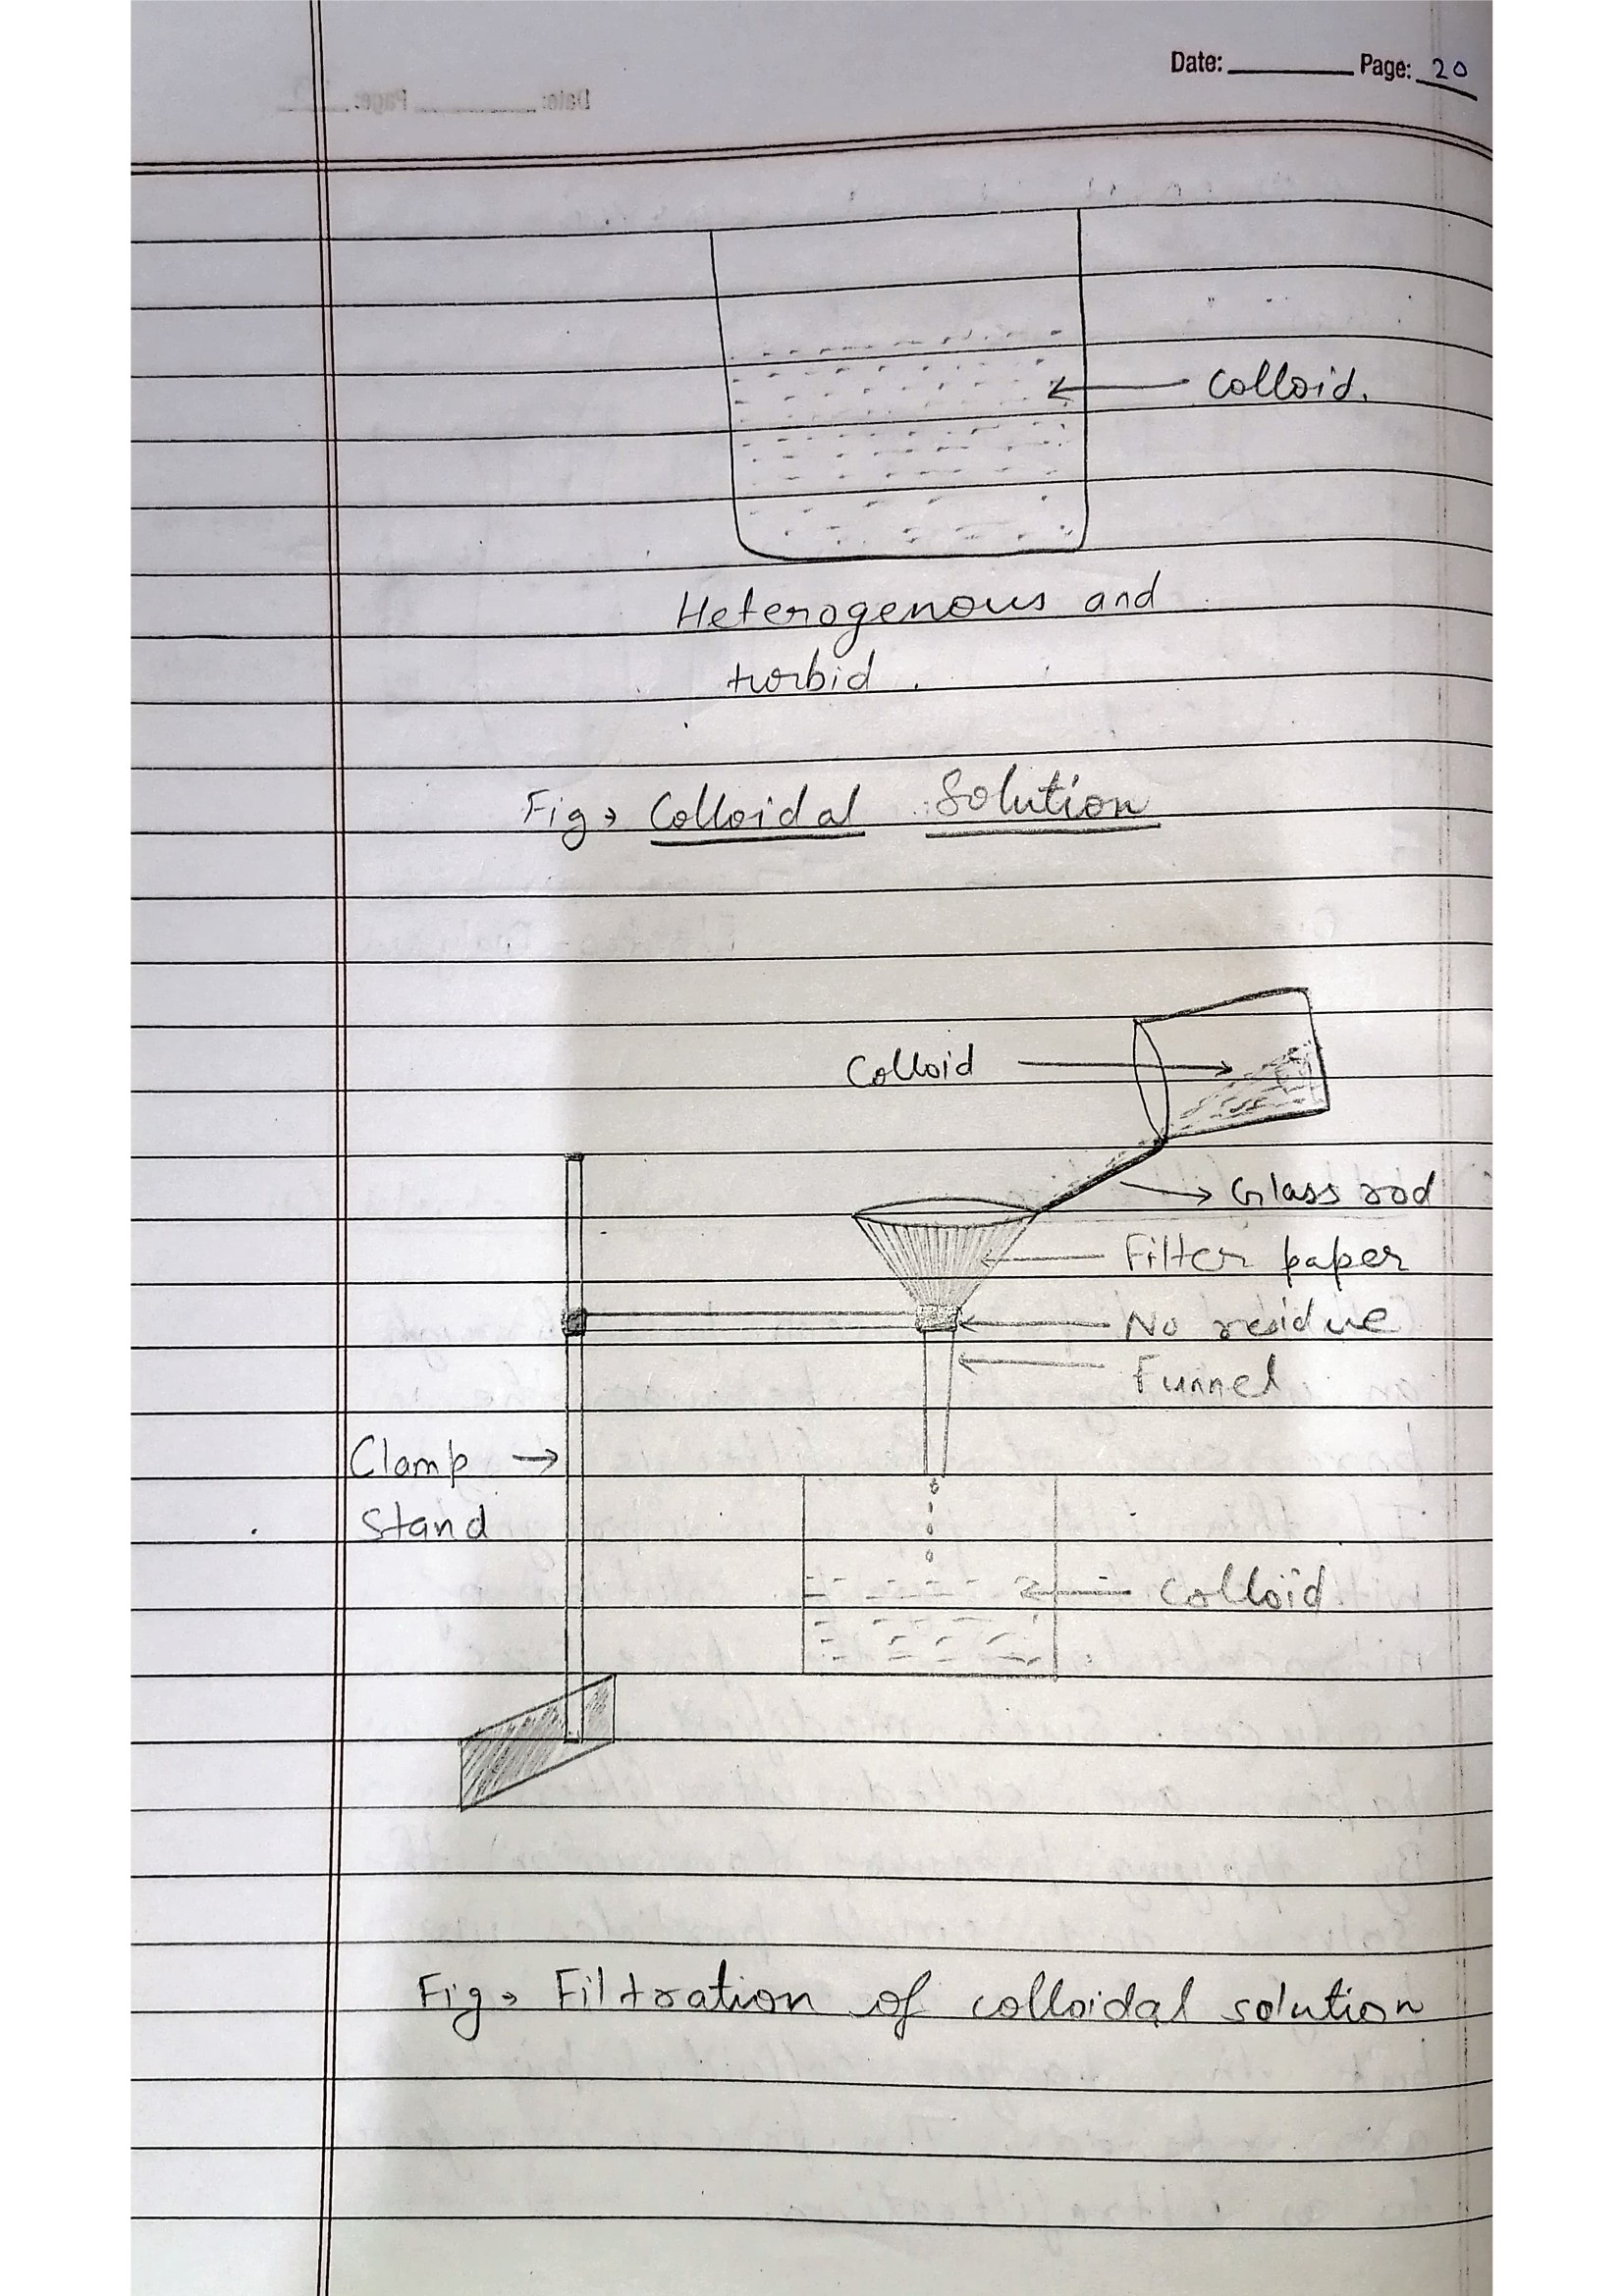 Date: Page: 20
Colloid.
Heterogenous and
turbid.
Fig → Colloidal Solution
Colloid
Glass rod
Filter paper
No residue
Funnel
Clamp
Stand
Colloid
Fig → Filtration of colloidal solution